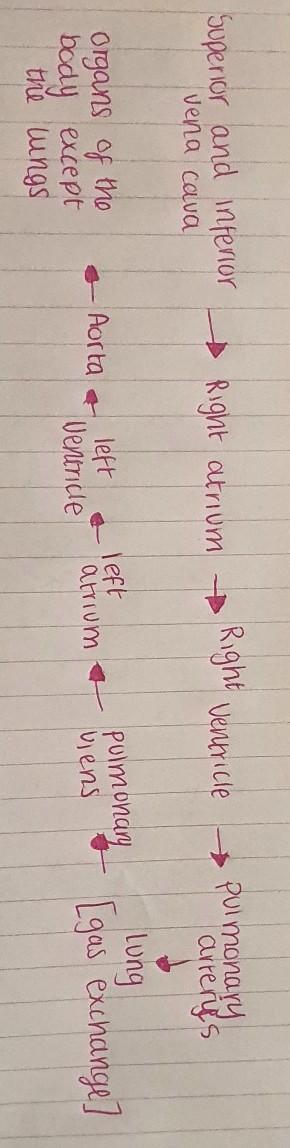 Superior and inferior → Right atrium → Right ventricle → pulmonary
vena cava
arterys
↓
lung
organs of the ← Aorta ← left ← left ← pulmonary ← [gas exchange]
body except
ventricle
atrium
viens
the lungs